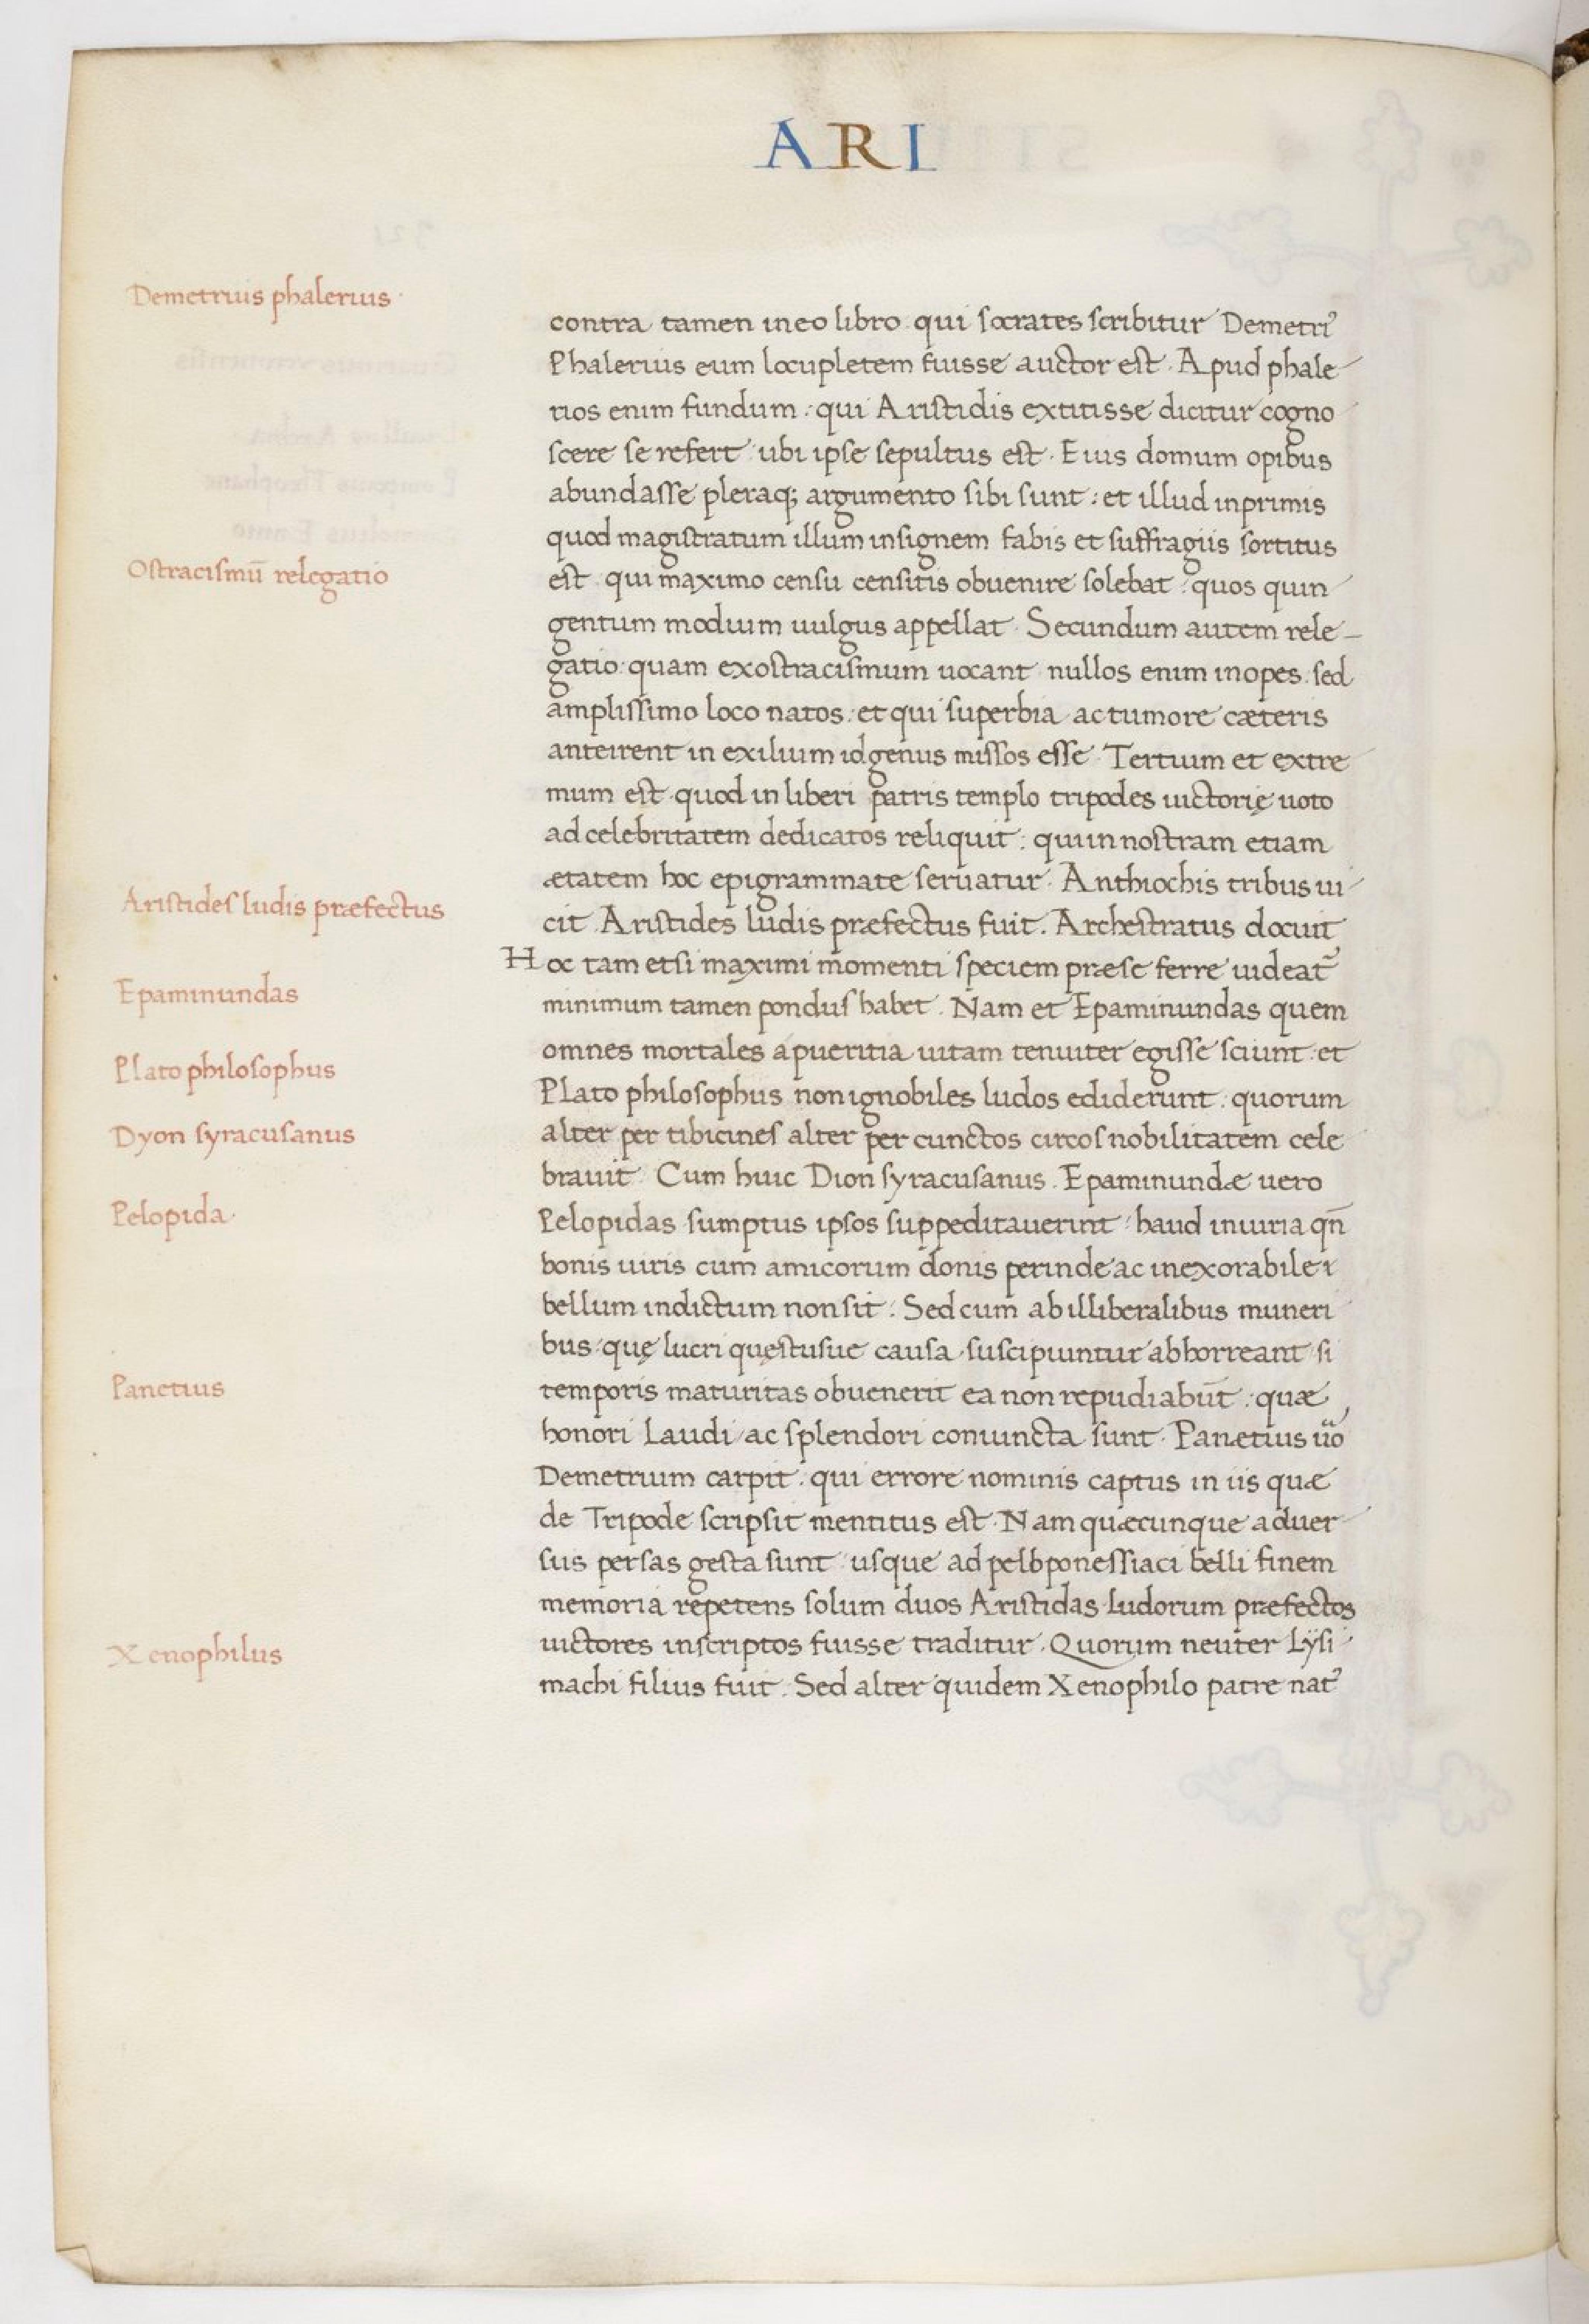 ARI
Demetrius phalerius·
contra tamen in eo libro qui socrates scribitur Demetri᾽
Phalerius eum locupletem fuisse auctor est· Apud phale-
rios enim fundum: qui Aristidis extitisse dicitur cogno-
scere se refert ubi ipse sepultus est· Eius domum opibus
abundasse pleraq; argumento sibi sunt: et illud inprimis
quod magistratum illum insignem fabis et suffragiis sortitus
Ostracismū relegatio
est qui maximo censu censitis obuenire solebat: quos quin-
gentum modium uulgus appellat· Secundum autem rele-
gatio· quam exostracismum uocant nullos enim inopes· sed
amplissimo loco natos: et qui superbia ac tumore cæteris
anteirent in exilium id genus missos esse· Tertium et extre-
mum est quod in liberi patris templo tripodes uictorię uoto
ad celebritatem dedicatos reliquit: qui in nostram etiam
ætatem hoc epigrammate seruatur· Anthiochis tribus ui-
Aristides ludis præfectus
cit Aristides ludis præfectus fuit. Archestratus docuit
Hoc tam etsi maximi momenti speciem præse ferre uideat᾽
Epaminundas
minimum tamen pondus habet. Nam et Epaminundas quem
omnes mortales a pueritia uitam tenuiter egisse sciunt: et
Plato philosophus
Plato philosophus non ignobiles ludos ediderunt: quorum
Dyon syracusanus
alter per tibicines alter per cunctos circos nobilitatem cele-
brauit· Cum huic Dion syracusanus· Epaminundæ uero
Pelopida·
Pelopidas sumptus ipsos suppeditauerint: haud iniuria qn̄
bonis uiris cum amicorum donis perinde ac inexorabile
bellum indictum non sit: Sed cum ab illiberalibus muneri-
bus· quę lucri quęstusue causa suscipiuntur abhorreant si
Panetius
temporis maturitas obuenerit ea non repudiabūt: quæ
honori Laudi ac splendori coniuncta sunt· Panætius ūo
Demetrium carpit: qui errore nominis captus in iis quæ
de Tripode scripsit mentitus est· Nam quæcunque aduer-
sus persas gesta sunt usque ad pelopponessiaci belli finem
memoria repetens solum duos Aristidas Ludorum præfectos
Xenophilus
uictores inscriptos fuisse traditur. Quorum neuter Lysi-
machi filius fuit. Sed alter quidem Xenophilo patre nat᾽